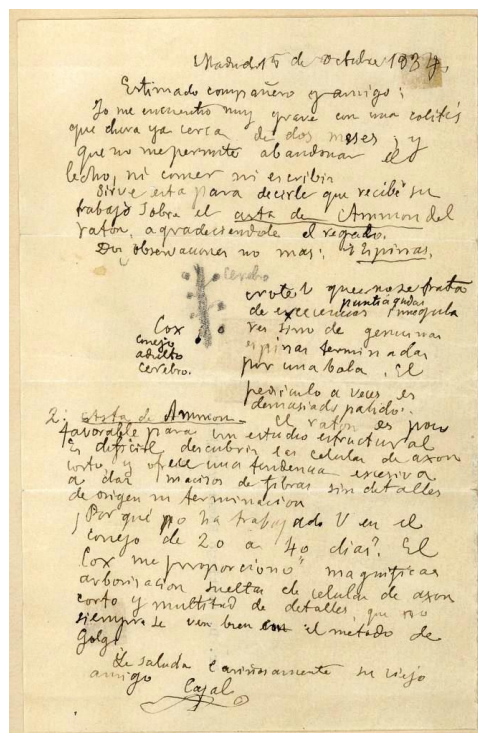 Madrid 15 de Octubre 1934,
Estimado compañero y amigo:
Yo me encuentro muy grave con una colitis
que dura ya cerca de dos meses, y
que no me permite abandonar el
lecho, ni comer ni escribir
Sirve esta para decirle que recibi su
trabajo sobre el asta de Ammon del
raton, agradeciendole el regalo.
Dos observaciones no mas: 1 Espinas.
cerebro
note V que no se trata
de excrecencias puntiagudas irregula
res sino de genuinas
Cox
conejo
adulto
cerebro.
espinas terminadas
por una bola. El
pediculo a veces es
demasiado palido.
2. Asta de Ammon. El raton es poco
favorable para un estudio estructural
Es dificil descubrir las celulas de axon
corto, y ofrece una tendencia excesiva
a dar macizos de fibras sin detalles
de origen ni terminacion
¿Por qué no ha trabajado V en el
conejo de 20 a 40 dias? El
Cox me proporcionó magnificas
arborizacion sueltas de celulas de axon
corto y multitud de detalles que no
siempre se ven bien con el método de
Golgi
Le saluda cariñosamente su viejo
amigo
Cajal